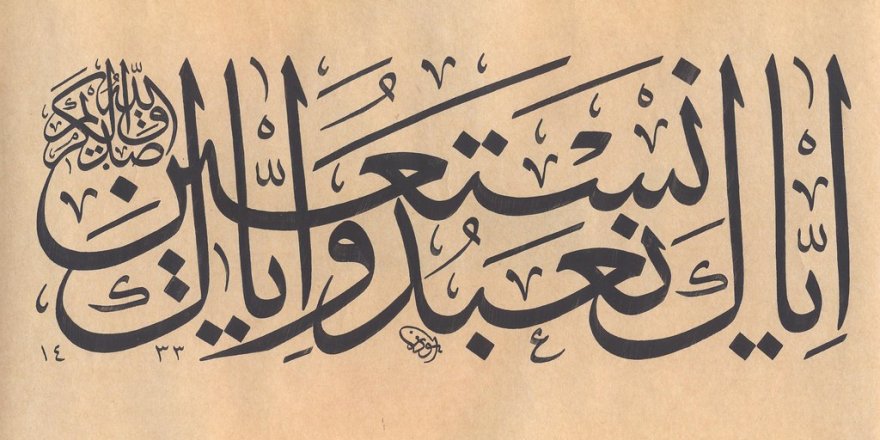 اِيَّاكَ نَعْبُدُ وَاِيَّاكَ نَسْتَعِينُ
صدق الله الكريم
١٤٣٣